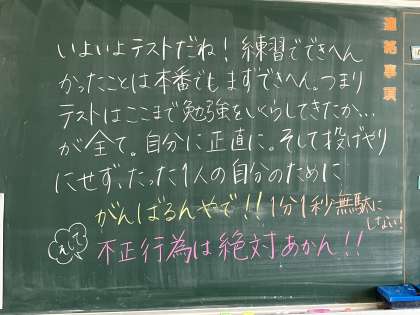 連絡事項
いよいよテストだね!練習でできへん
かったことは本番でもまずできへん。つまり
テストはここまで勉強をいくらしてきたか…
が全て。自分に正直に。そして投げやり
にせず、たった1人の自分のために
がんばるんやで!!1分1秒無駄に
しない!
そして
不正行為は絶対あかん!!